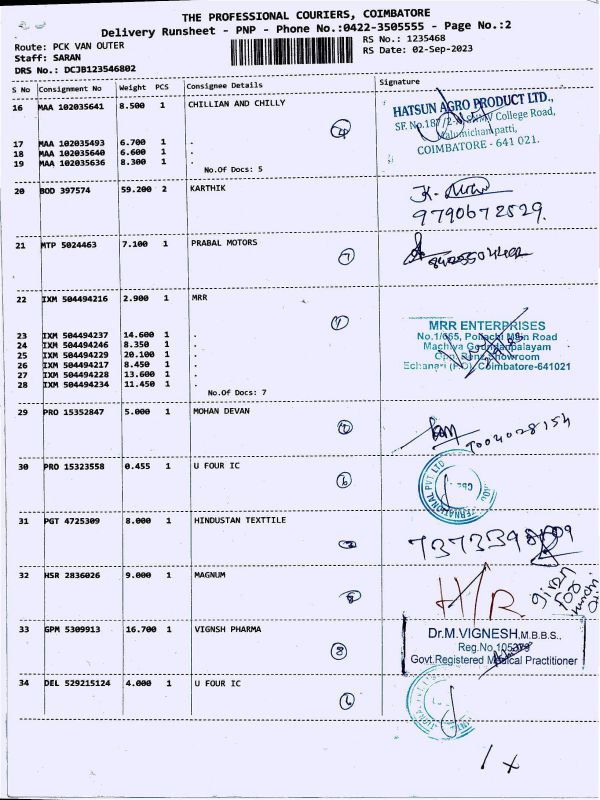 THE PROFESSIONAL COURIERS, COIMBATORE
Delivery Runsheet - PNP - Phone No.:0422-3505555 - Page No.:2
Route: PCK VAN OUTER
RS No.: 1235468
Staff: SARAN
RS Date: 02-Sep-2023
DRS No.: DCJB123546802
S No Consignment No Weight PCS Consignee Details Signature
16 MAA 102035641 8.500 1 CHILLIAN AND CHILLY
HATSUN AGRO PRODUCT LTD.,
College Road,
COIMBATORE - 641 021.
17 MAA 102035493 6.700 1 .
18 MAA 102035640 6.600 1 .
19 MAA 102035636 8.300 1 .
No.Of Docs: 5
20 BOD 397574 59.200 2 KARTHIK
9790672529.
21 MTP 5024463 7.100 1 PRABAL MOTORS
22 IXM 504494216 2.900 1 MRR
MRR ENTERPRISES
No.1/665, Pollachi Main Road
Machiya Goundanpalayam
Showroom
Echanari (PO), Coimbatore-641021
23 IXM 504494237 14.600 1 .
24 IXM 504494246 8.350 1 .
25 IXM 504494229 20.100 1 .
26 IXM 504494217 8.450 1 .
27 IXM 504494228 13.600 1 .
28 IXM 504494234 11.450 1 .
No.Of Docs: 7
29 PRO 15352847 5.000 1 MOHAN DEVAN
30 PRO 15323558 0.455 1 U FOUR IC
31 PGT 4725309 8.000 1 HINDUSTAN TEXTTILE
32 HSR 2836026 9.000 1 MAGNUM
H/R
33 GPM 5309913 16.700 1 VIGNSH PHARMA
Dr.M.VIGNESH, M.B.B.S.,
Reg.No
Govt.Registered Medical Practitioner
34 DEL 529215124 4.000 1 U FOUR IC